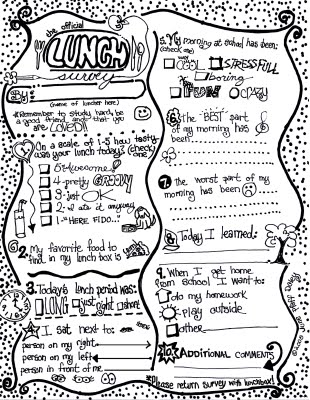 the official
LUNCH
survey
By:
(name of luncher here)
*Remember to study hard, be
a good friend, and that you
are LOVED!!
1. On a scale of 1-5 how tasty
was your lunch today? (check
one)
5-Awesome
4-pretty GROOVY
3-just OK
2-I ate it anyway
1-"HERE FIDO..."
2. My favorite food to
find in my lunch box is
3. Today's lunch period was:
LONG just right short
4. I sat next to:
person on my right
person on my left
person in front of me
5. My morning at school has been:
(check one)
COOL STRESSFULL
boring
FUN CRAZY
6. the BEST part
of my morning has
been
7. The worst part of my
morning has been
8. Today I learned:
9. When I get home
from school I want to:
do my homework
play outside
other
10. ADDITIONAL COMMENTS
*Please return survey with lunchbox!